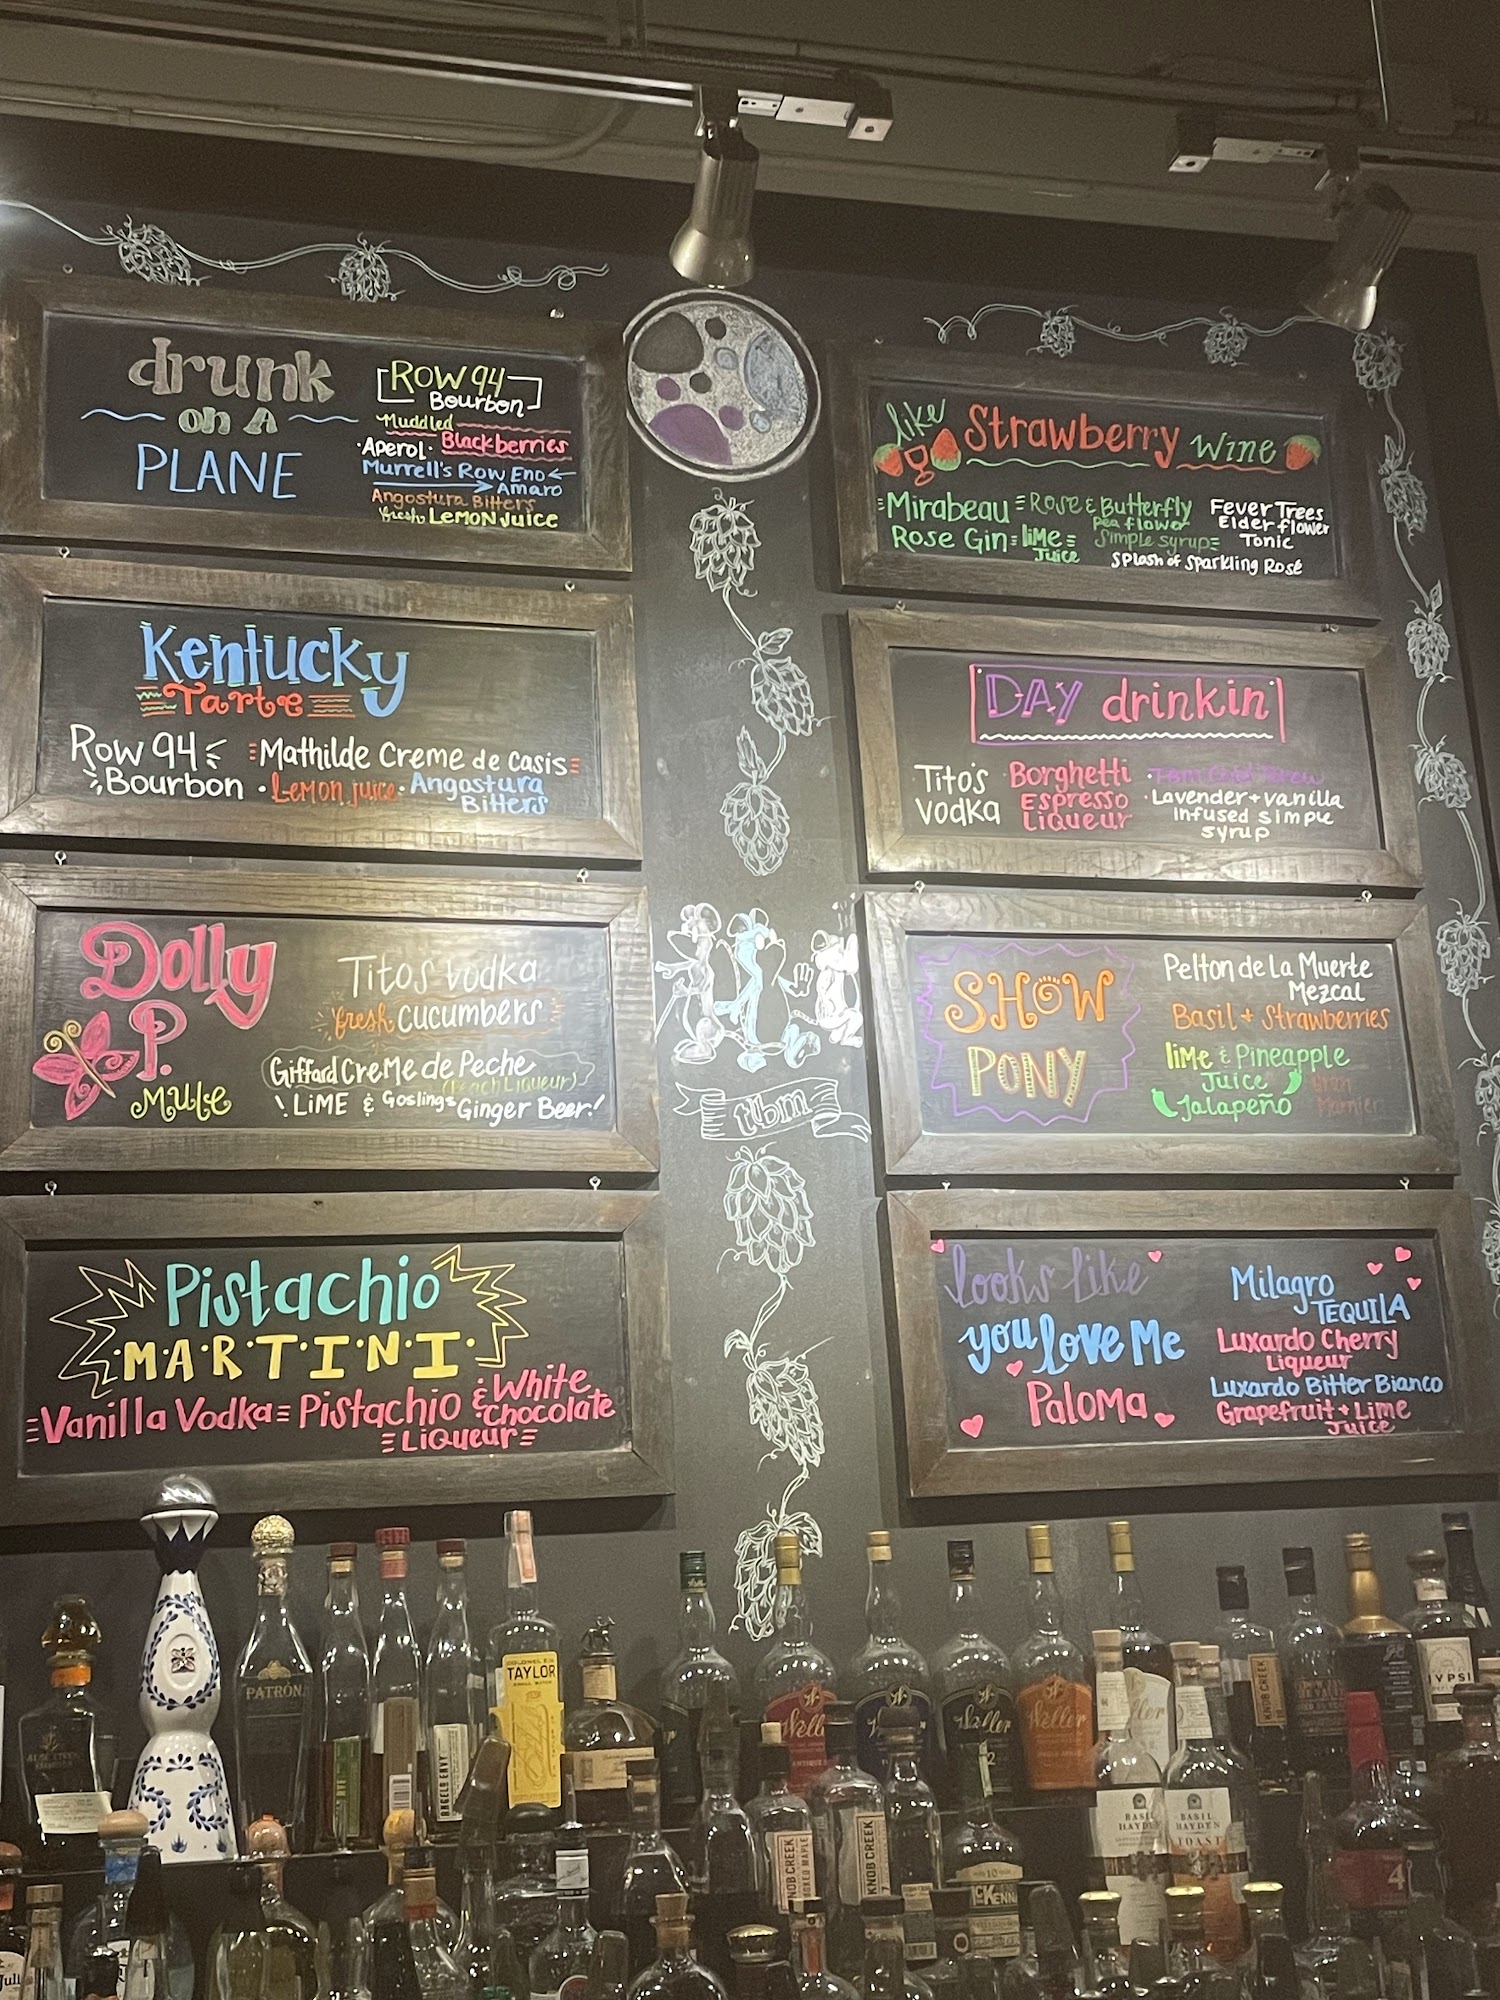 drunk
on A
PLANE
Row 94
Bourbon
Muddled
Blackberries
·Aperol·
Murrell's Row Eno
Amaro
Angostura Bitters
fresh Lemon Juice
like
Strawberry Wine
Mirabeau
Rose Gin
lime
Juice
Rose & Butterfly
Pea flower
Simple syrup
Fever Trees
Elder flower
Tonic
Splash of Sparkling Rosé
Kentucky
Tarte
Row 94
Bourbon
Mathilde Creme de Casis
·Lemon juice·
Angostura
Bitters
DAY drinkin'
Tito's
Vodka
·Borghetti
Espresso
Liqueur
·TBM Cold Brew
·Lavender + vanilla
infused simple
syrup
Dolly
P.
Mule
Titos Vodka
fresh cucumbers
Giffard Creme de Peche
(Peach Liqueur)
! LIME & Goslings Ginger Beer!
tbm
SHOW
PONY
Pelton de La Muerte
Mezcal
Basil + Strawberries
lime & Pineapple
Juice
Jalapeño
Gran
Marnier
Pistachio
M·A·R·T·I·N·I·
Vanilla Vodka
Pistachio
& White
Chocolate
Liqueur
looks like
you love Me
Paloma
Milagro
TEQUILA
Luxardo Cherry
Liqueur
Luxardo Bitter Bianco
Grapefruit + Lime
Juice
PATRÓN
RYE
ANGEL'S ENVY
COLONEL E.H.
TAYLOR
SMALL BATCH
Weller
Weller
Weller
12
Weller
KNOB CREEK
BASIL
HAYDEN
BASIL
HAYDEN
TOAST
KNOB CREEK
SMOKED MAPLE
KNOB CREEK
10
McKENNA
4